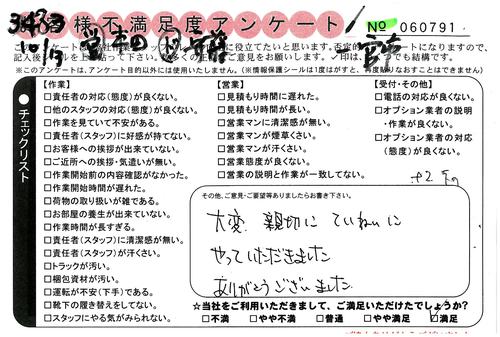 お客様不満足度アンケート
No 060791
10/3
※このアンケートは、アンケート目的以外には使用いたしません。(※情報保護シールは1度がはすと、再度貼りなおすことはできません)
チェックリスト
【作業】
□責任者の対応(態度)が良くない。
□他のスタッフの対応(態度)が良くない。
□作業を見ていて不安がある。
□責任者(スタッフ)に好感が持てない。
□お客様への挨拶が出来ていない。
□ご近所への挨拶・気遣いが無い。
□作業開始前の内容確認がなかった。
□作業開始時間が遅れた。
□荷物の取り扱いが雑である。
□お部屋の養生が出来ていない。
□作業時間が長すぎる。
□責任者(スタッフ)に清潔感が無い。
□責任者(スタッフ)が汗くさい。
□トラックが汚い。
□梱包資材が汚い。
□運転が不安(下手)である。
□靴下の履き替えをしてない。
□スタッフにやる気がみられない。
【営業】
□見積もり時間に遅れた。
□見積もり時間が長い。
□営業マンに清潔感が無い。
□営業マンが煙草くさい。
□営業マンが汗くさい。
□営業態度が良くない。
□営業の説明と作業が一致してない。
【受付・その他】
□電話の対応が良くない。
□オプション業者の説明
・作業が良くない。
□オプション業者の対応
(態度)が良くない。
その他、ご意見・ご要望等ありましたらお書き下さい。
大変、親切に ていねいに
やっていただきました
ありがとうございました
☆当社をご利用いただきまして、ご満足いただけたでしょうか?
□不満 □やや不満 □普通 □やや満足 □満足